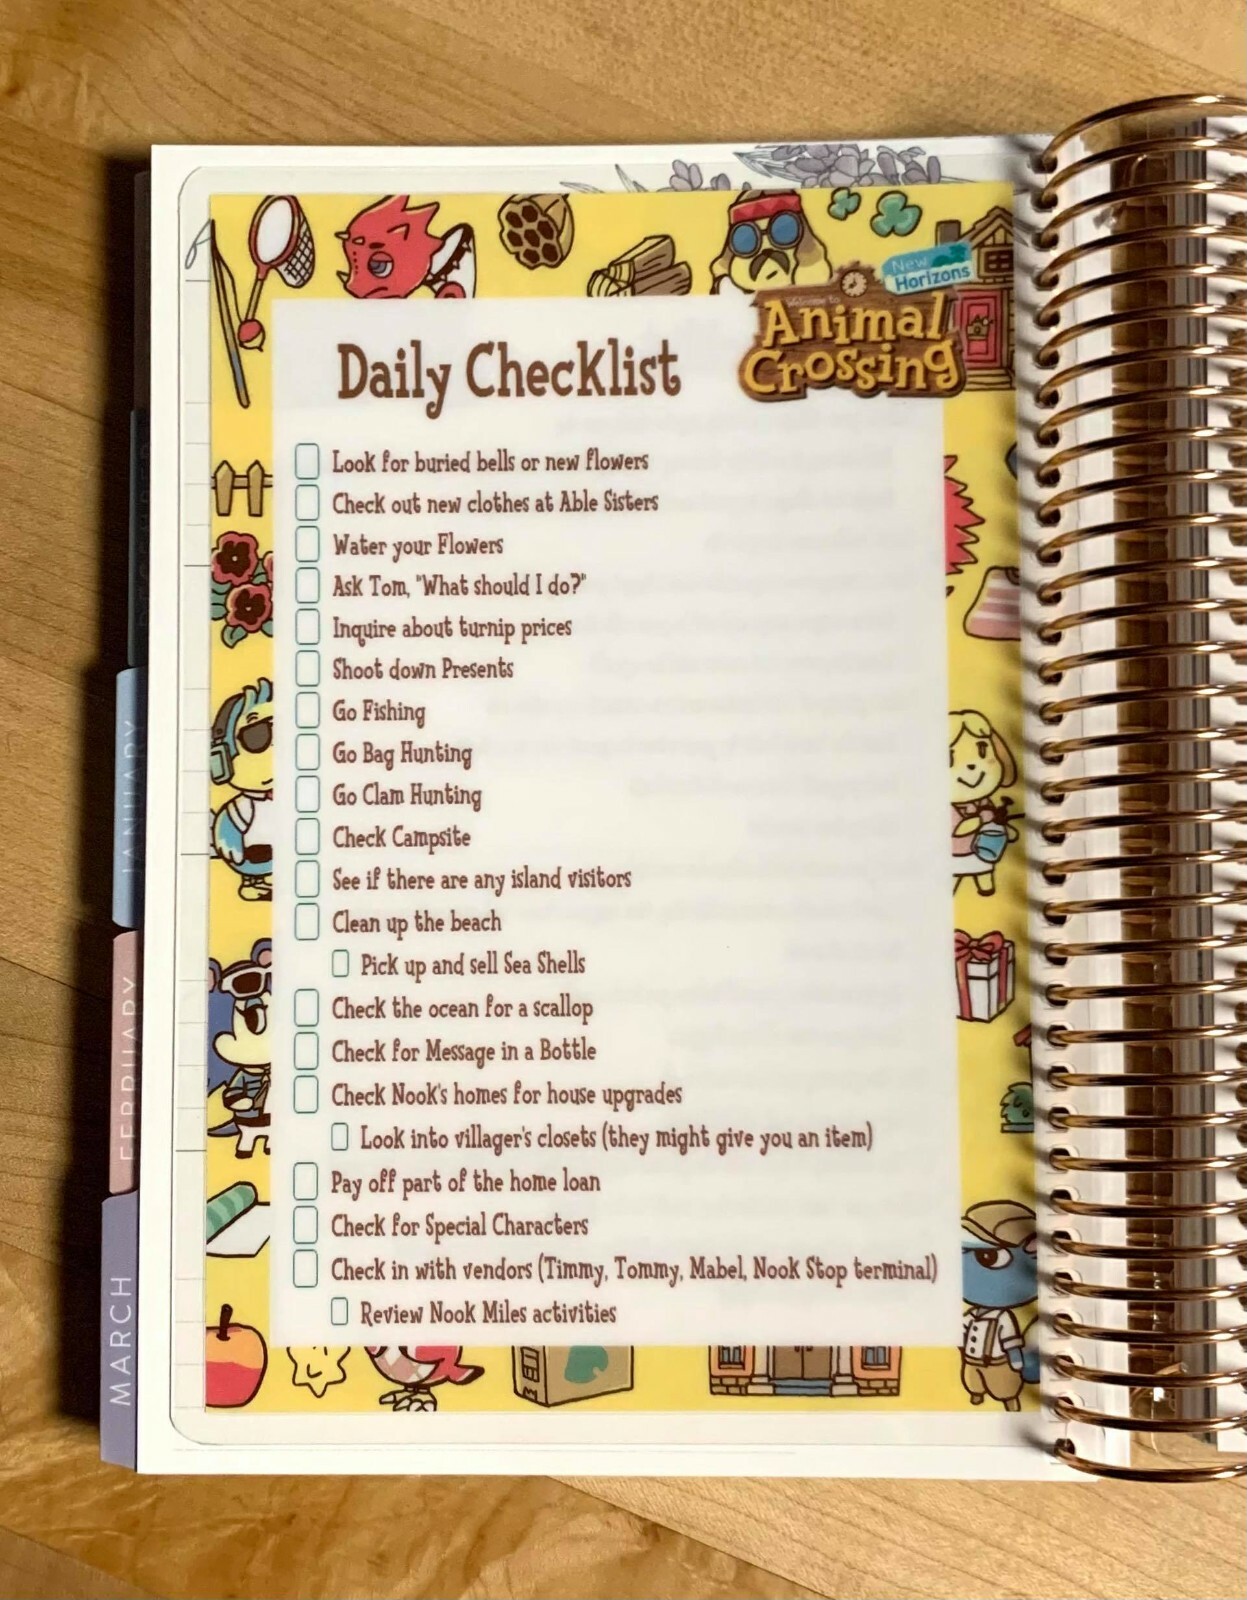 New
Horizons
Welcome to
Animal
Crossing
Daily Checklist
Look for buried bells or new flowers
Check out new clothes at Able Sisters
Water your Flowers
Ask Tom, "What should I do?"
Inquire about turnip prices
Shoot down Presents
Go Fishing
Go Bag Hunting
Go Clam Hunting
Check Campsite
See if there are any island visitors
Clean up the beach
Pick up and sell Sea Shells
Check the ocean for a scallop
Check for Message in a Bottle
Check Nook's homes for house upgrades
Look into villager's closets (they might give you an item)
Pay off part of the home loan
Check for Special Characters
Check in with vendors (Timmy, Tommy, Mabel, Nook Stop terminal)
Review Nook Miles activities
JANUARY
FEBRUARY
MARCH